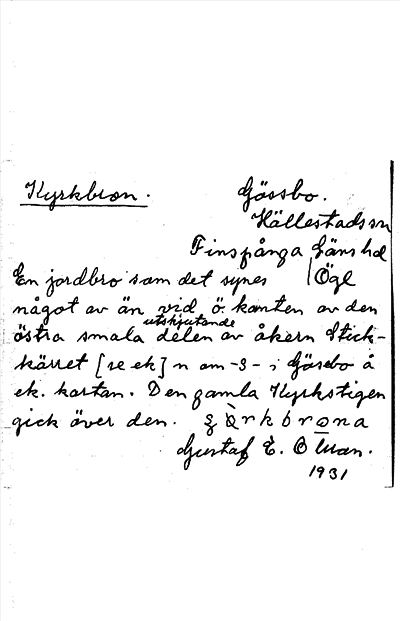 Kyrkbron. Gössbo.
Hällestads sn
Finspånga läns hd
Ögl
En jordbro som det synes
något av än vid ö. kanten av den
östra smala utskjutande delen av åkern Stick-
kärret [se ek] n om -s- i Gössbo å
ek. kartan. Den gamla Kyrkstigen
gick över den.
Gustaf E. Olsson.
1931